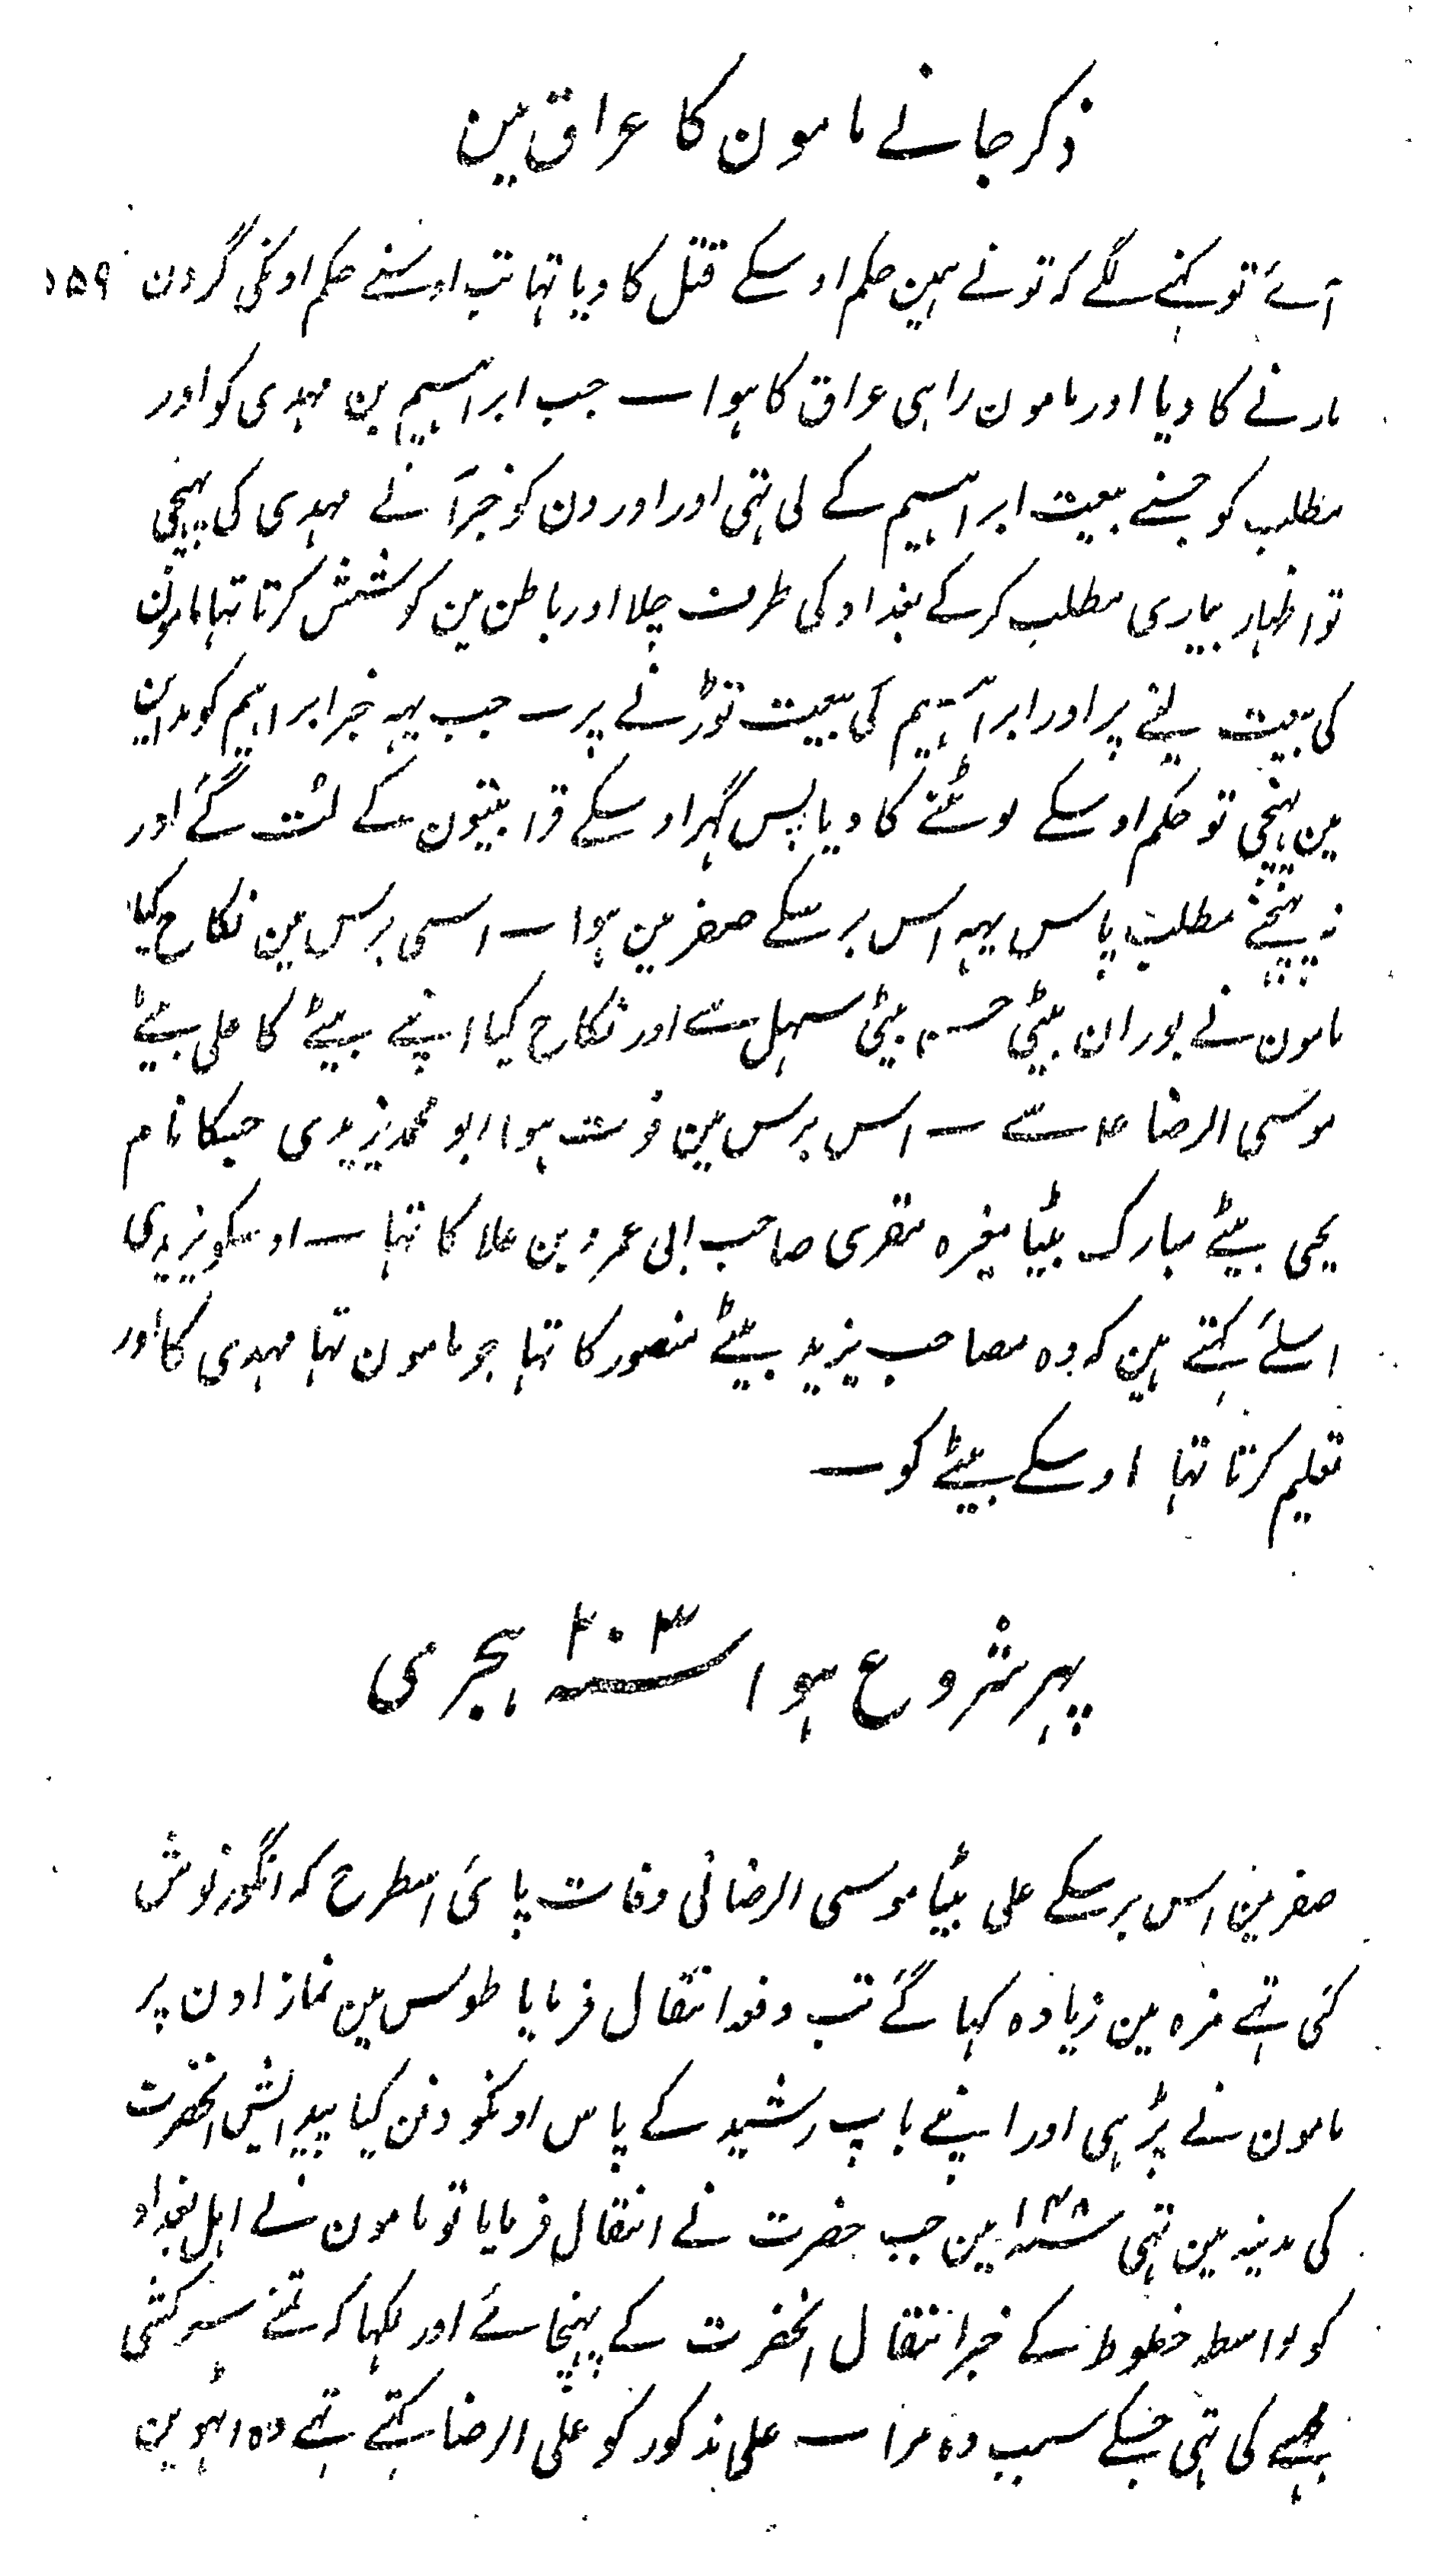 ذکر جانے مامون کا عراق مین
آئے تو کہنے لگے کہ تونے ہمین حکم اوسکے قتل کا دیا تہا تب اوسنے حکم اونکی گردن ۱۵۹
مارنے کا دیا اور مامون راہی عراق کا ہوا ــ جب ابراہیم بن مہدی کو اور
مطلب کو جسنے بیعت ابراہیم کے لی تہی اور اورون کو خبر آنے مہدی کی پہنچی
تو اظہار بیماری مطلب کرکے بغداد کی طرف چلا اور باطن مین کوشش کرتا تہا مامون
کی بیعت لینے پر اور ابراہیم کی بیعت توڑنے پر ــ جب یہہ خبر ابراہیم کو مداین
مین پہنچی تو حکم اوسکے لوٹنے کا دیا پس گہر اوسکے قرابیتون کے لٹ گئے اور
نہ پہنچے مطلب پاس یہہ اس برسکے صفر مین ہوا ــ اسی برس مین نکاح کیا
مامون نے بوران بیٹی حسن بیٹی سہل سے اور نکاح کیا اپنے بیٹے کا علی بیٹے
موسی الرضا ع سے ــ اس برس مین فوت ہوا ابو محمد یزیدی جسکا نام
یحی بیٹے مبارک بیٹا مغیرہ مقری صاحب ابی عمرو بن علا کا تہا ــ اوسکو یزیدی
اسلئے کہتے ہین کہ وہ مصاحب یزید بیٹے منصور کا تہا جو مامون تہا مہدی کا اور
تعلیم کرتا تہا اوسکے بیٹے کو ــ
پہر شروع ہوا سنہ ۲۰۳ ہجری
صفر مین اس برسکے علی بیٹا موسی الرضا نی وفات پائی اسطرح کہ انگور نوش
کئی تہے مزہ مین زیادہ کہا گے تب دفعۃ انتقال فرمایا طوس مین نماز اون پر
مامون نے پڑہی اور اپنے باپ رشید کے پاس اونکو دفن کیا پیدایش انحضرت
کی مدینہ مین تہی سنہ ۱۴۸ مین جب حضرت نے انتقال فرمایا تو مامون نے اہل بغداد
کو بواسطہ خطوط کے خبر انتقال انحضرت کے پہنچائے اور لکہا کہ تمنے سرکشی
مجہسے کی تہی جسکے سبب وہ مرا ــ علی مذکور کو علی الرضا کہتے تہے وہ اٹہوین